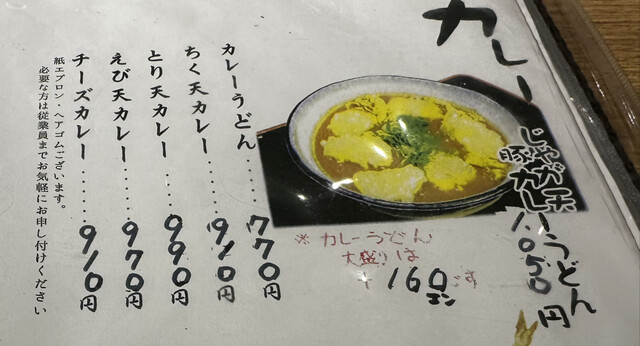 カレー
じゃが天
豚カレーうどん
1,050円
※カレーうどん
大盛りは
+160エンです
カレーうどん....770円
ちく天カレー.....910円
とり天カレー.....990円
えび天カレー.....970円
チーズカレー.....910円
紙エプロン・ヘアゴムございます。
必要な方は従業員までお気軽にお申し付けください